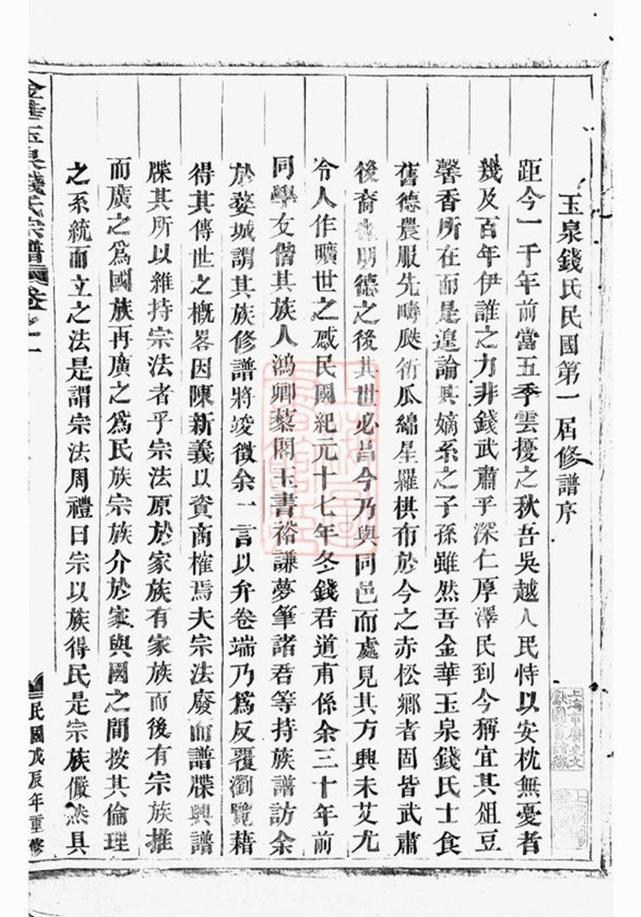 玉泉錢氏民國第一屆修譜序
距今一千年前當五季雲擾之秋吾吳越人民恃以安枕無憂者
幾及百年伊誰之力非錢武肅乎深仁厚澤民到今稱宜其俎豆
馨香所在而是遑論其嫡系之子孫雖然吾金華玉泉錢氏士食
舊德農服先疇瓞衍瓜綿星羅棋布於今之赤松鄉者固皆武肅
後裔也明德之後其世必昌今乃與同邑而處見其方興未艾尤
令人作曠世之感民國紀元十七年冬錢君道甫係余三十年前
同學友偕其族人鴻卿慕閑玉書裕謙夢筆諸君等持族譜訪余
於婺城謂其族修譜將竣徵余一言以弁卷端乃為反覆瀏覽藉
得其傳世之概畧因陳新義以資商榷焉夫宗法廢而譜牒興譜
牒其所以維持宗法者乎宗法原於家族有家族而後有宗族推
而廣之為國族再廣之為民族宗族介於家與國之間按其倫理
之系統而立之法是謂宗法周禮曰宗以族得民是宗族儼然具
金華玉泉錢氏宗譜 卷之一
民國戊辰年重修